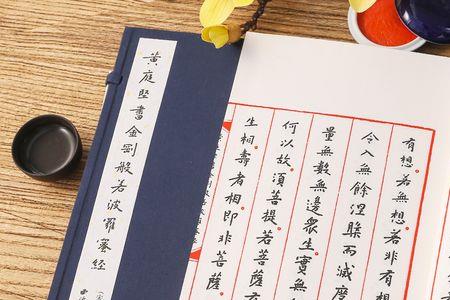 黃庭堅書金剛般若波羅蜜經
有想若無想若非有
令入無餘涅槃而滅度
量無數無邊眾生實無
何以故須菩提若菩薩有
生相壽者相即非菩薩